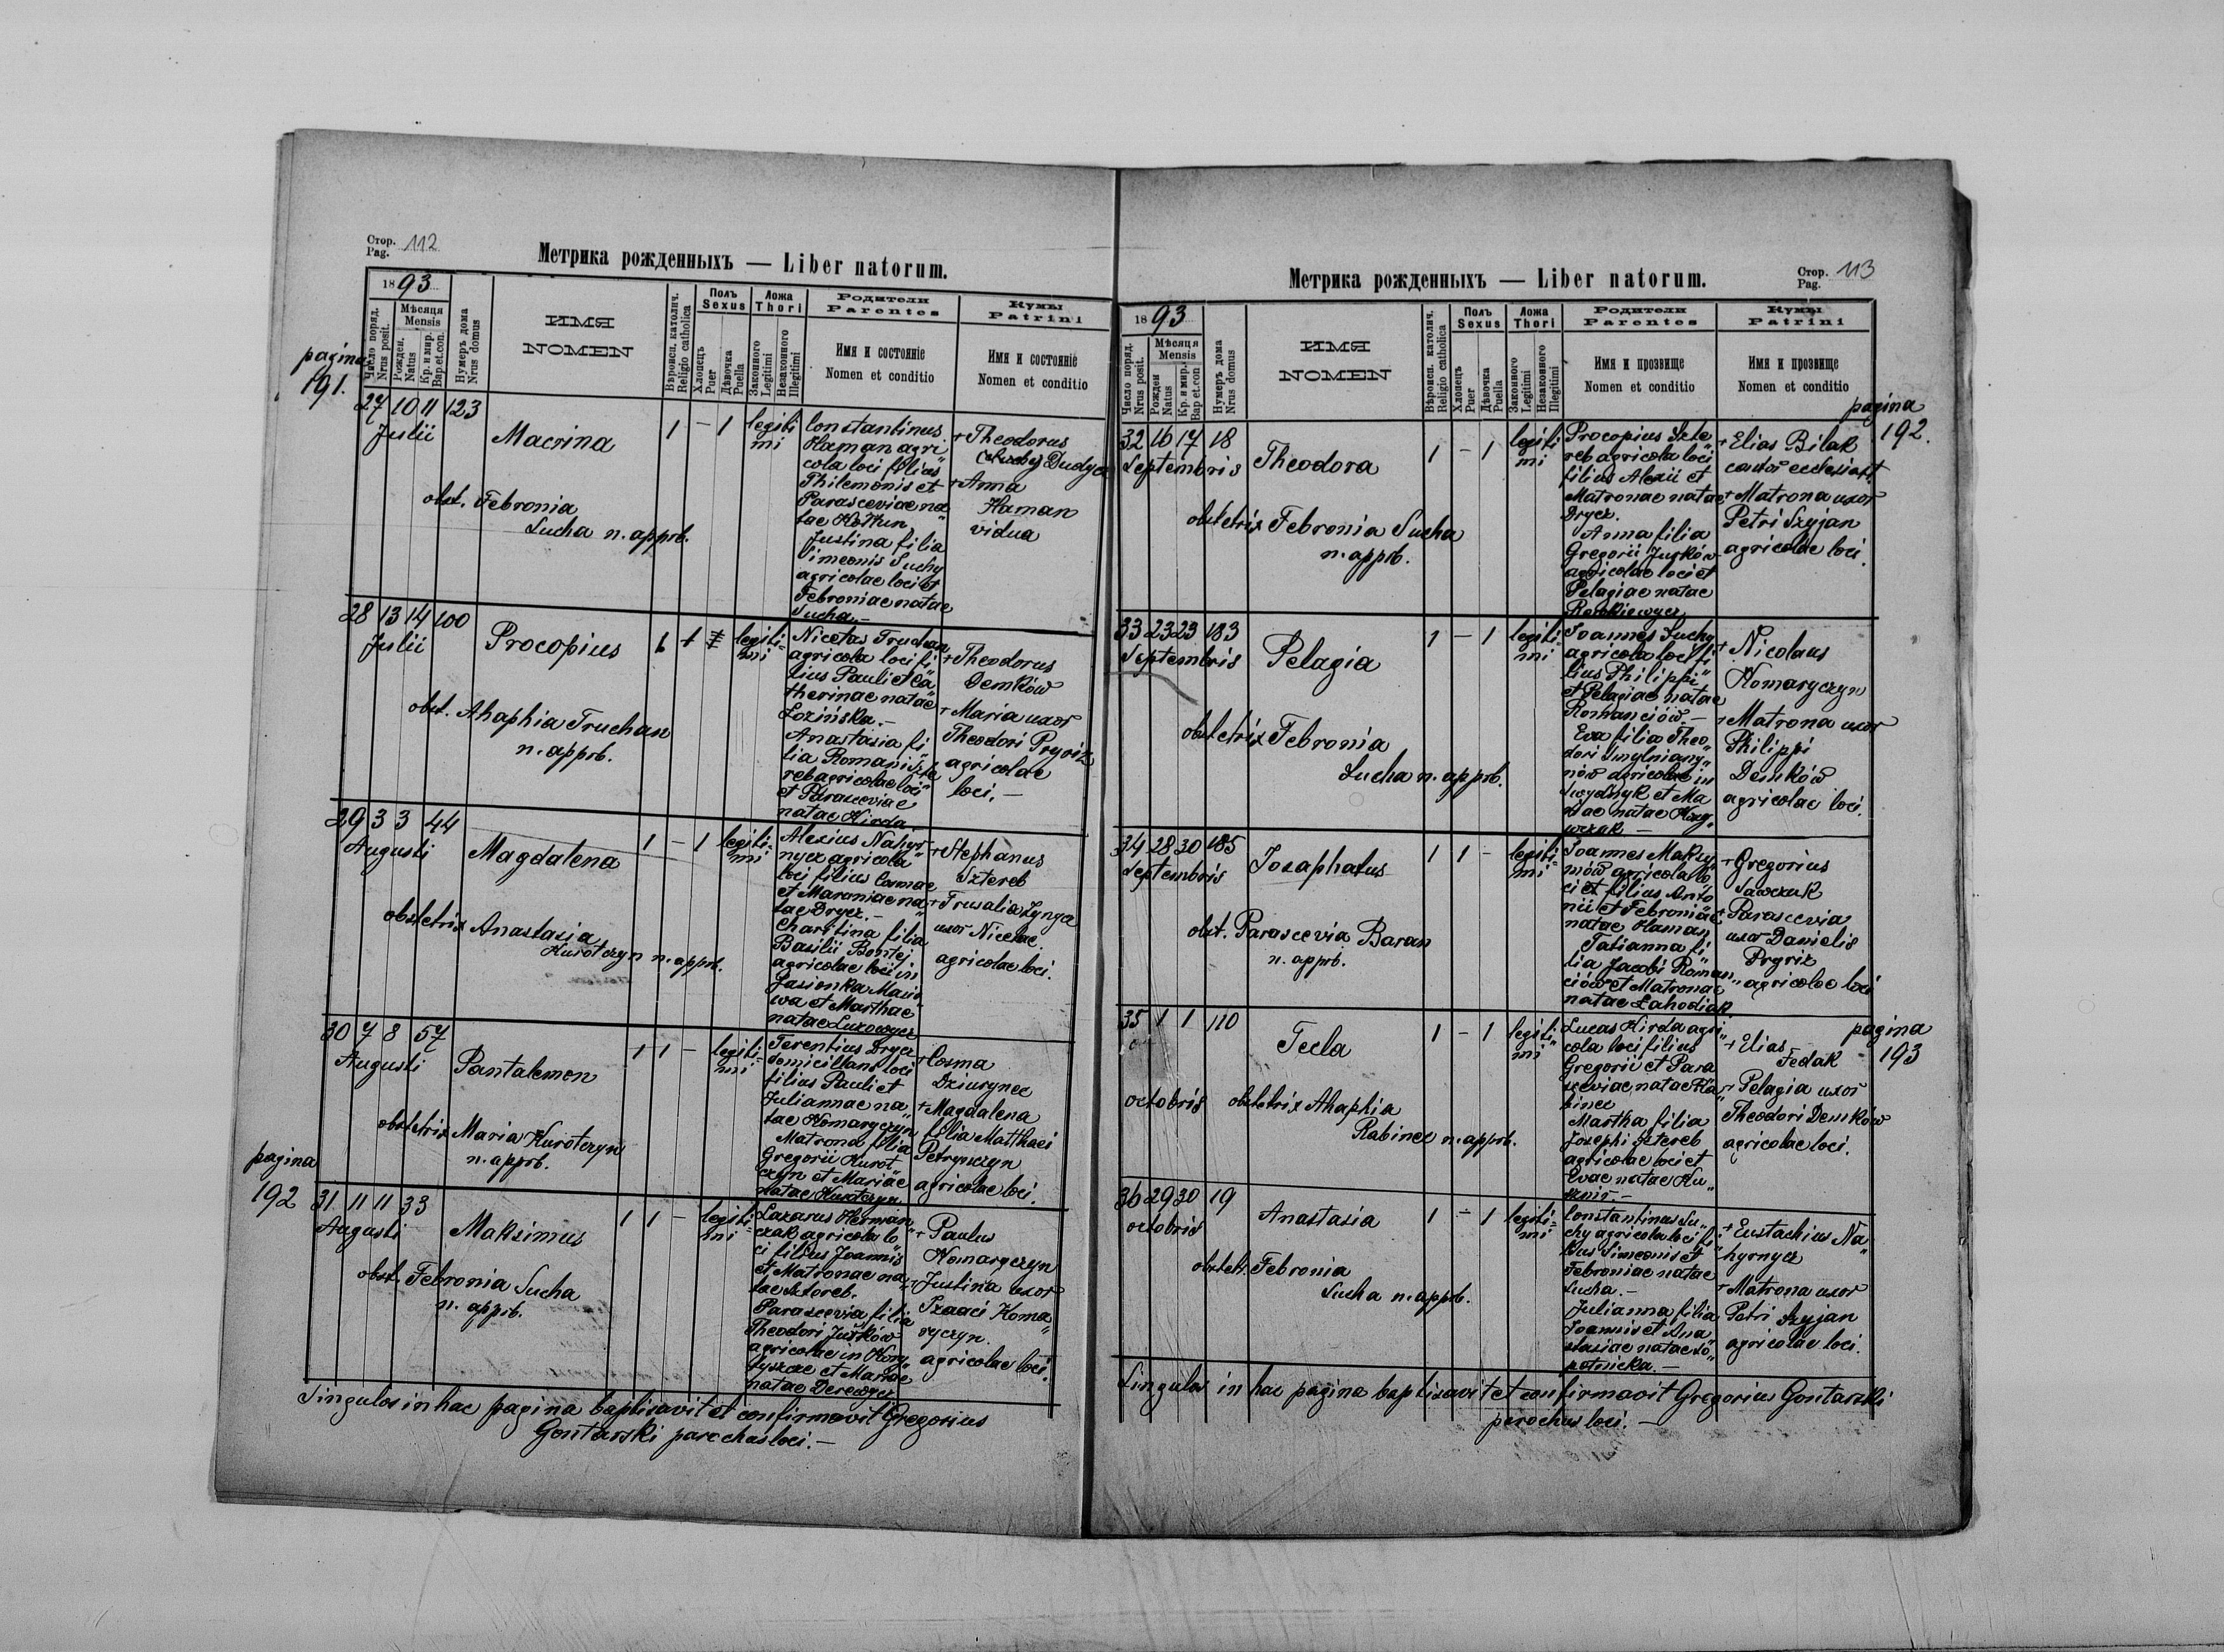 Стор.
Pag. 112
Метрика рожденныхъ — Liber natorum.
1893
Число поряд.
Nrus posit.
Мѣсяця
Mensis
Рожден.
Natus
Кр. и мир.
Bap.et.con.
Нумеръ дома
Nrus domus
ИМЯ
NOMEN
Вѣроисп. католич.
Religio catholica
Полъ
Sexus
Хлопецъ
Puer
Дѣвочка
Puella
Ложа
Thori
Законного
Legitimi
Незаконного
Illegitimi
Родители
Parentes
Имя и состояніе
Nomen et conditio
Кумы
Patrini
Имя и состояніе
Nomen et conditio
pagina
191.
27 10 11 123
Julii
Macrina
1 – 1 legiti
mi
obst. Febronia
Sucha n. apprb.
Constantinus
Haman agri
cola loci filius
Philemonis et
Parasceviae na
tae
Justina filia
Simeonis Suchy
agricolae loci et
Febroniae natae
Sucha.–
+ Theodorus
Dudycz
+ Anna
Haman
vidua
28 13 14 100
Julii
Procopius
legiti
mi
obst. Ahaphia Truchan
n. apprb.
Nicetas Truchan
agricola loci fi
lius Pauli et Ca
therinae natae
Łozińska.–
Anastasia fi
lia Romani Szte
reb agricolae loci
et Parasceviae
natae Hirda.
+ Theodorus
Demków
+ Maria uxor
Theodori Pryriz
agricolae
loci.–
29 3 3 44
Augusti
Magdalena
1 – 1 legiti=
mi
obstetrix Anastasia
Kurotczyn n. apprb.
Alexius Nahyr
nycz agricola
loci filius Cosmae
et Maraniae na
tae Drycz.–
Charitina filia
Basilii Bontej
agricolae loci in
Jasionka Masio
wa et Marthae
natae
+ Stephanus
Sztereb
+ Trusalia Zynycz
uxor Nicetae
agricolae loci.
30 7 8 57
Augusti
Pantalemon
1 1 – legiti=
mi
obstetrix Maria Kurotczyn
n. apprb.
Terentius Drycz
domicilians loci
filius Pauli et
Juliannae na
tae Komaryczyn
Matrona filia
Gregorii Kurot
czyn et Mariae
natae Kurotczyn
+ Cosma
Dziurynec
+ Magdalena
filia Matthaei
Petrynczyn
agricolae loci.
pagina
192
31 11 11 33
Augusti
Maksimus
1 1 – legiti=
mi
obst. Febronia Sucha
n. apprb.
Lazarus Herman
czak agricola lo
ci filius Joannis
et Matronae na
tae Sztereb.
Parascevia filia
Theodori Juśków
agricolae in
et Mariae
natae Derewycz
+ Paulus
Komaryczyn
+ Justina uxor
Isaaci Koma
ryczyn.
agricolae loci.
Singulos in hac pagina baptisavit et confirmavit Gregorius
Gontarski parochus loci.–
Метрика рожденныхъ — Liber natorum.
Стор.
Pag. 113
1893
Число поряд.
Nrus posit.
Мѣсяця
Mensis
Рожден
Natus
Кр. и мир.
Bap et.con
Нумеръ дома
Nrus domus
ИМЯ
NOMEN
Вѣроисп. католич.
Religio catholica
Полъ
Sexus
Хлопецъ
Puer
Дѣвочка
Puella
Ложа
Thori
Законного
Legitimi
Незаконного
Illegitimi
Родители
Parentes
Имя и прозвище
Nomen et conditio
Кумы
Patrini
Имя и прозвище
Nomen et conditio
pagina
192.
32 16 17 18
Septembris
Theodora
1 – 1 legiti
mi
obstetrix Febronia Sucha
n. apprb.
Procopius Szte
reb agricola loci
filius Alexii et
Matronae natae
Drycz.
Anna filia
Gregorii Juśków
agricolae loci et
Pelagiae natae
+ Elias Bilak
cantor ecclesiast.
+ Matrona uxor
Petri Szyjan
agricolae loci.
33 23 23 183
Septembris
Pelagia
1 – 1 legiti=
mi
obstetrix Febronia
Sucha n. apprb.
Joannes Suchy
agricola loci fi
lius Philippi
et Pelagiae natae
Romanciów.–
Eva filia Theo
dori
agricolae in
et Ma
riae natae
+ Nicolaus
Komaryczyn
+ Matrona uxor
Philippi
Demków
agricolae loci.
34 28 30 185
Septembris
Josaphatus
1 1 – legiti=
mi
obst. Parascevia Baran
n. apprb.
Joannes Maksy
mów agricola lo
ci et filius Anto
nii et Febroniae
natae Haman
Tatianna fi
lia Jacobi Roman
ciów et Matronae
natae Łahodiak
+ Gregorius
Sawczuk
+ Parascevia
uxor Danielis
Pryriz
agricolae loci
35 1 1 110
octobris
Tecla
1 – 1 legiti
mi
obstetrix Ahaphia
Rabinec n. apprb.
pagina
193
Lucas Hirda agri
cola loci filius
Gregorii et Para
sceviae natae Ra
binec
Martha filia
Josephi Sztereb
agricolae loci et
Evae natae Ku
sznir.–
+ Elias
Fedak
+ Pelagia uxor
Theodori Demków
agricolae loci.
36 29 30 19
octobris
Anastasia
1 – 1 legiti=
mi
obstetr. Febronia
Sucha n. apprb.
Constantinus Su
chy agricola loci fi
lius Simeonis et
Febroniae natae
Sucha.–
Julianna filia
Joannis et Ana
stasiae natae So
potnicka.–
+ Eustachius Na
hyrnycz
+ Matrona uxor
Petri Szyjan
agricolae loci.
Singulos in hac pagina baptisavit et confirmavit Gregorius Gontarski
parochus loci.–